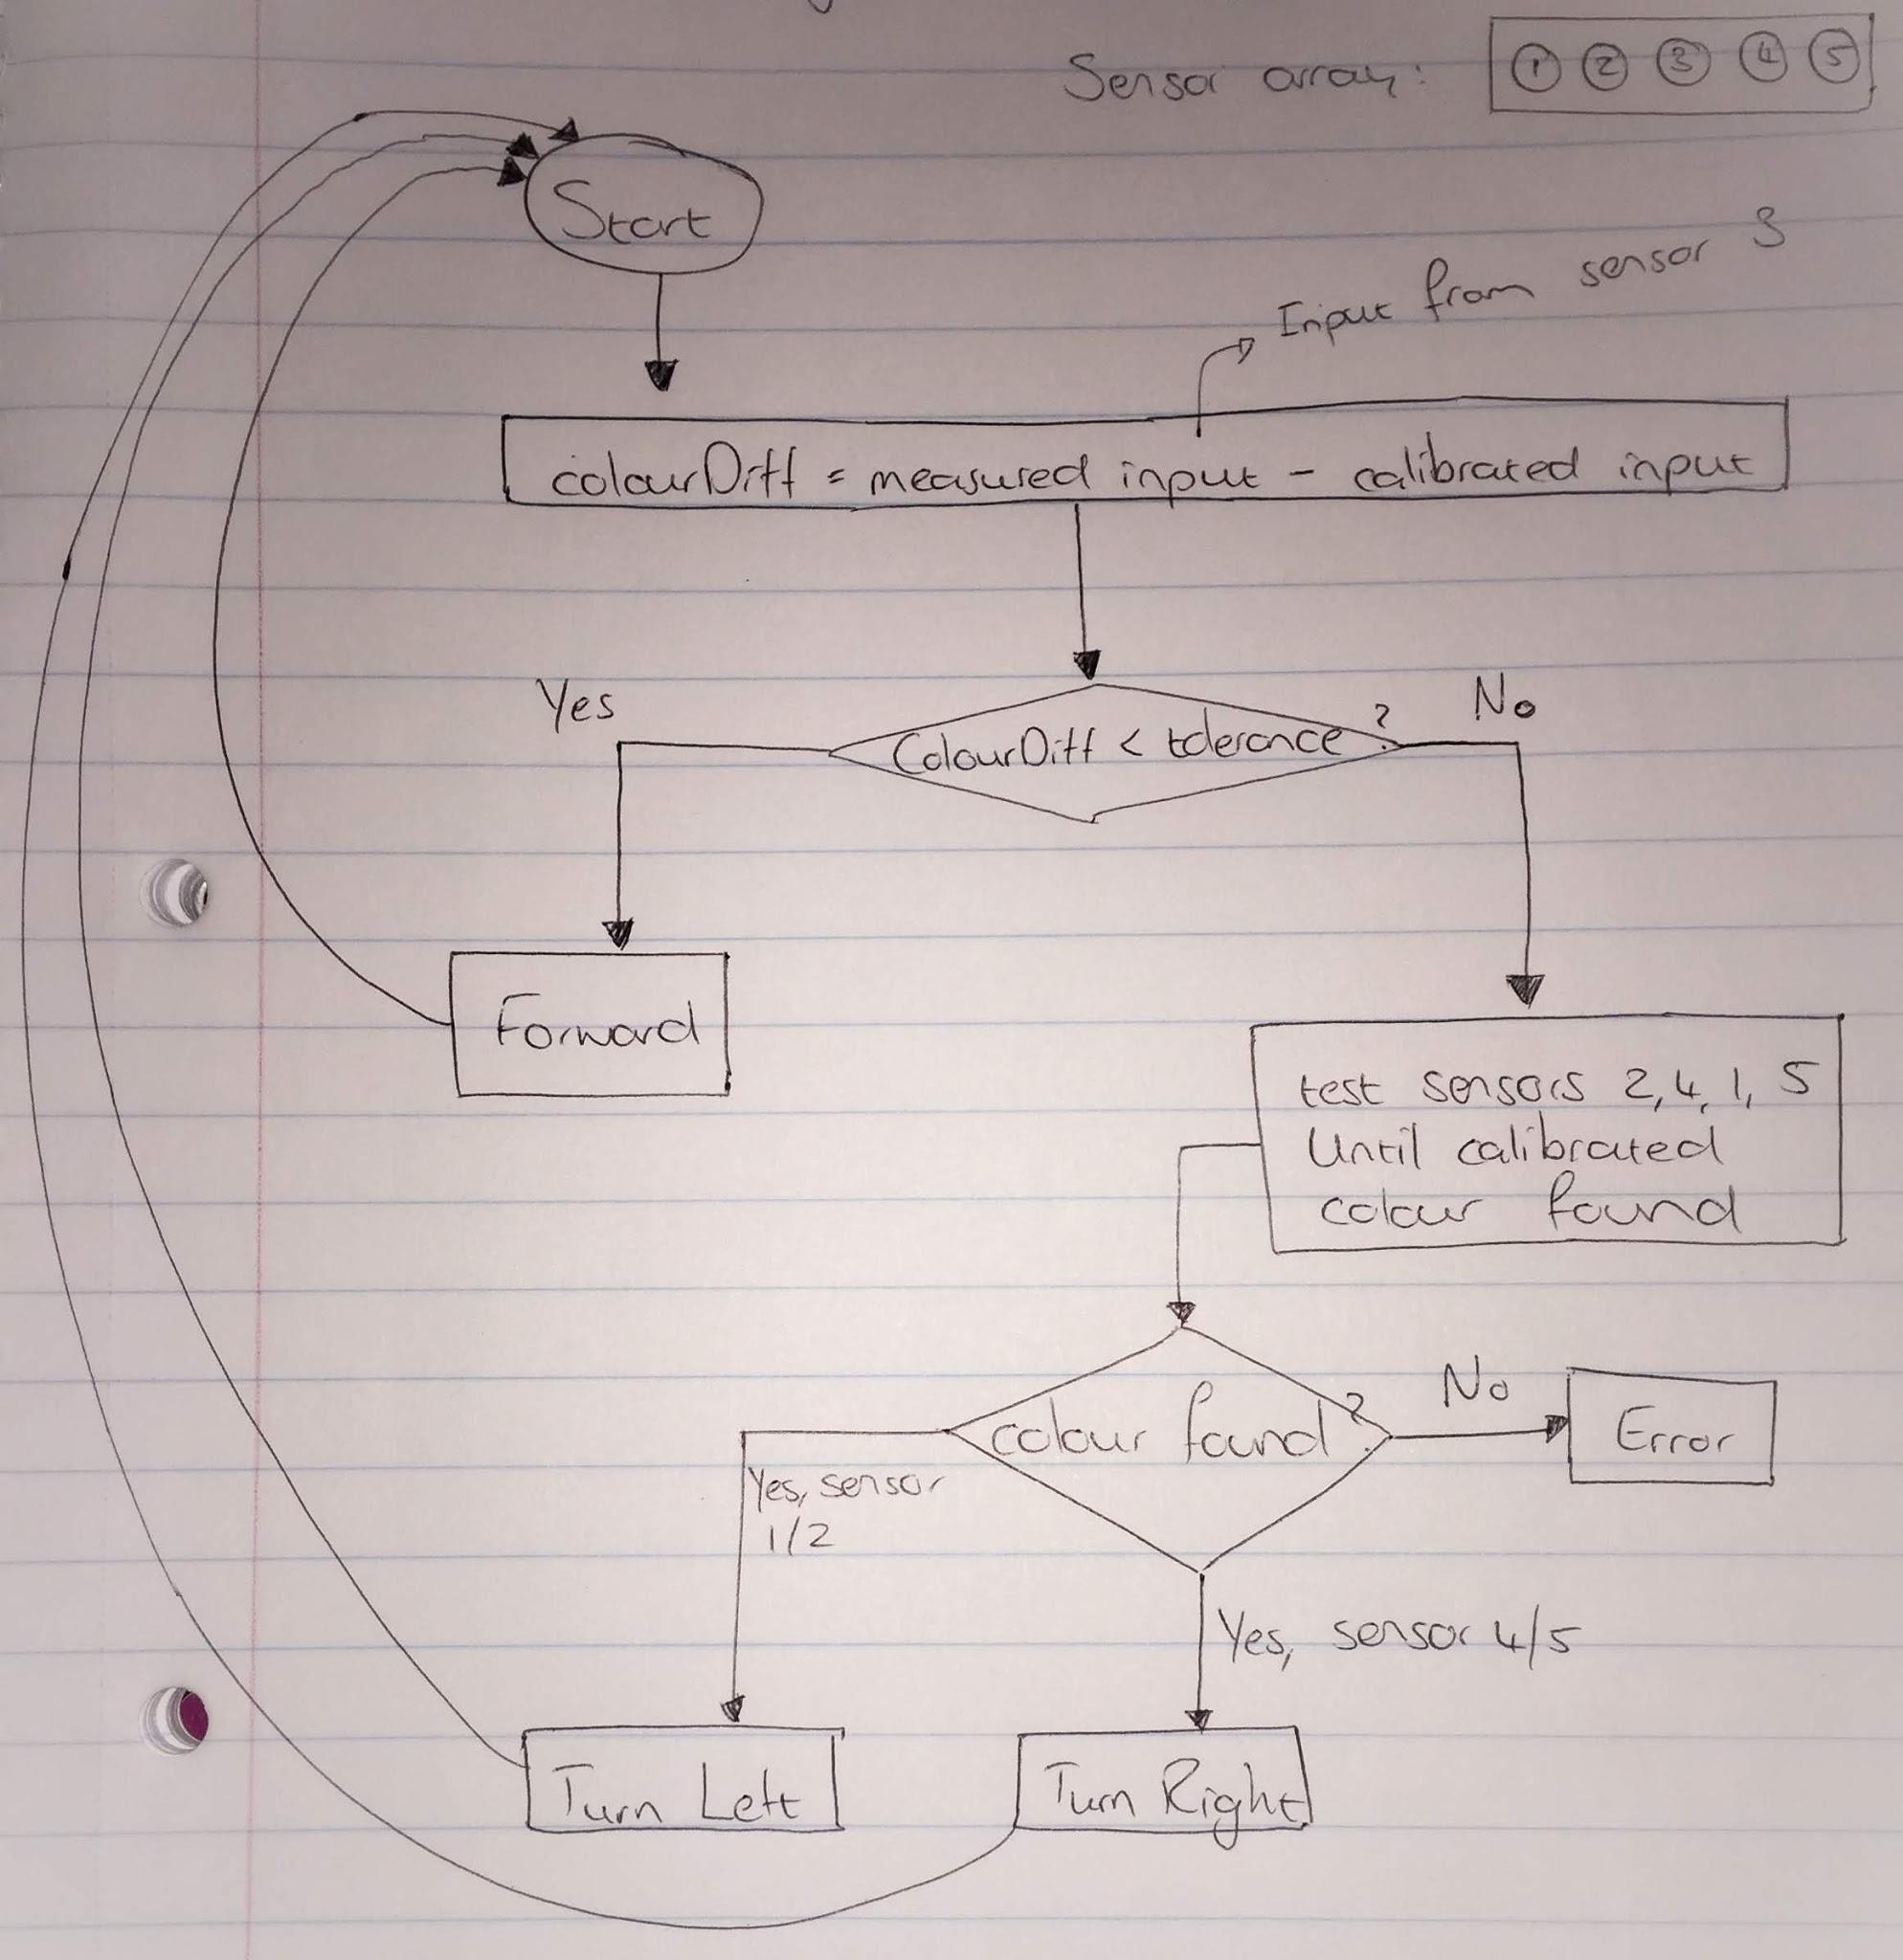 Sensor array: 1 2 3 4 5
Start
Input from sensor 3
colourDiff = measured input - calibrated input
Yes
ColourDiff < tolerance?
No
Forward
test sensors 2, 4, 1, 5
Until calibrated
colour found
colour found?
No
Error
Yes, sensor
1/2
Yes, sensor 4/5
Turn Left
Turn Right